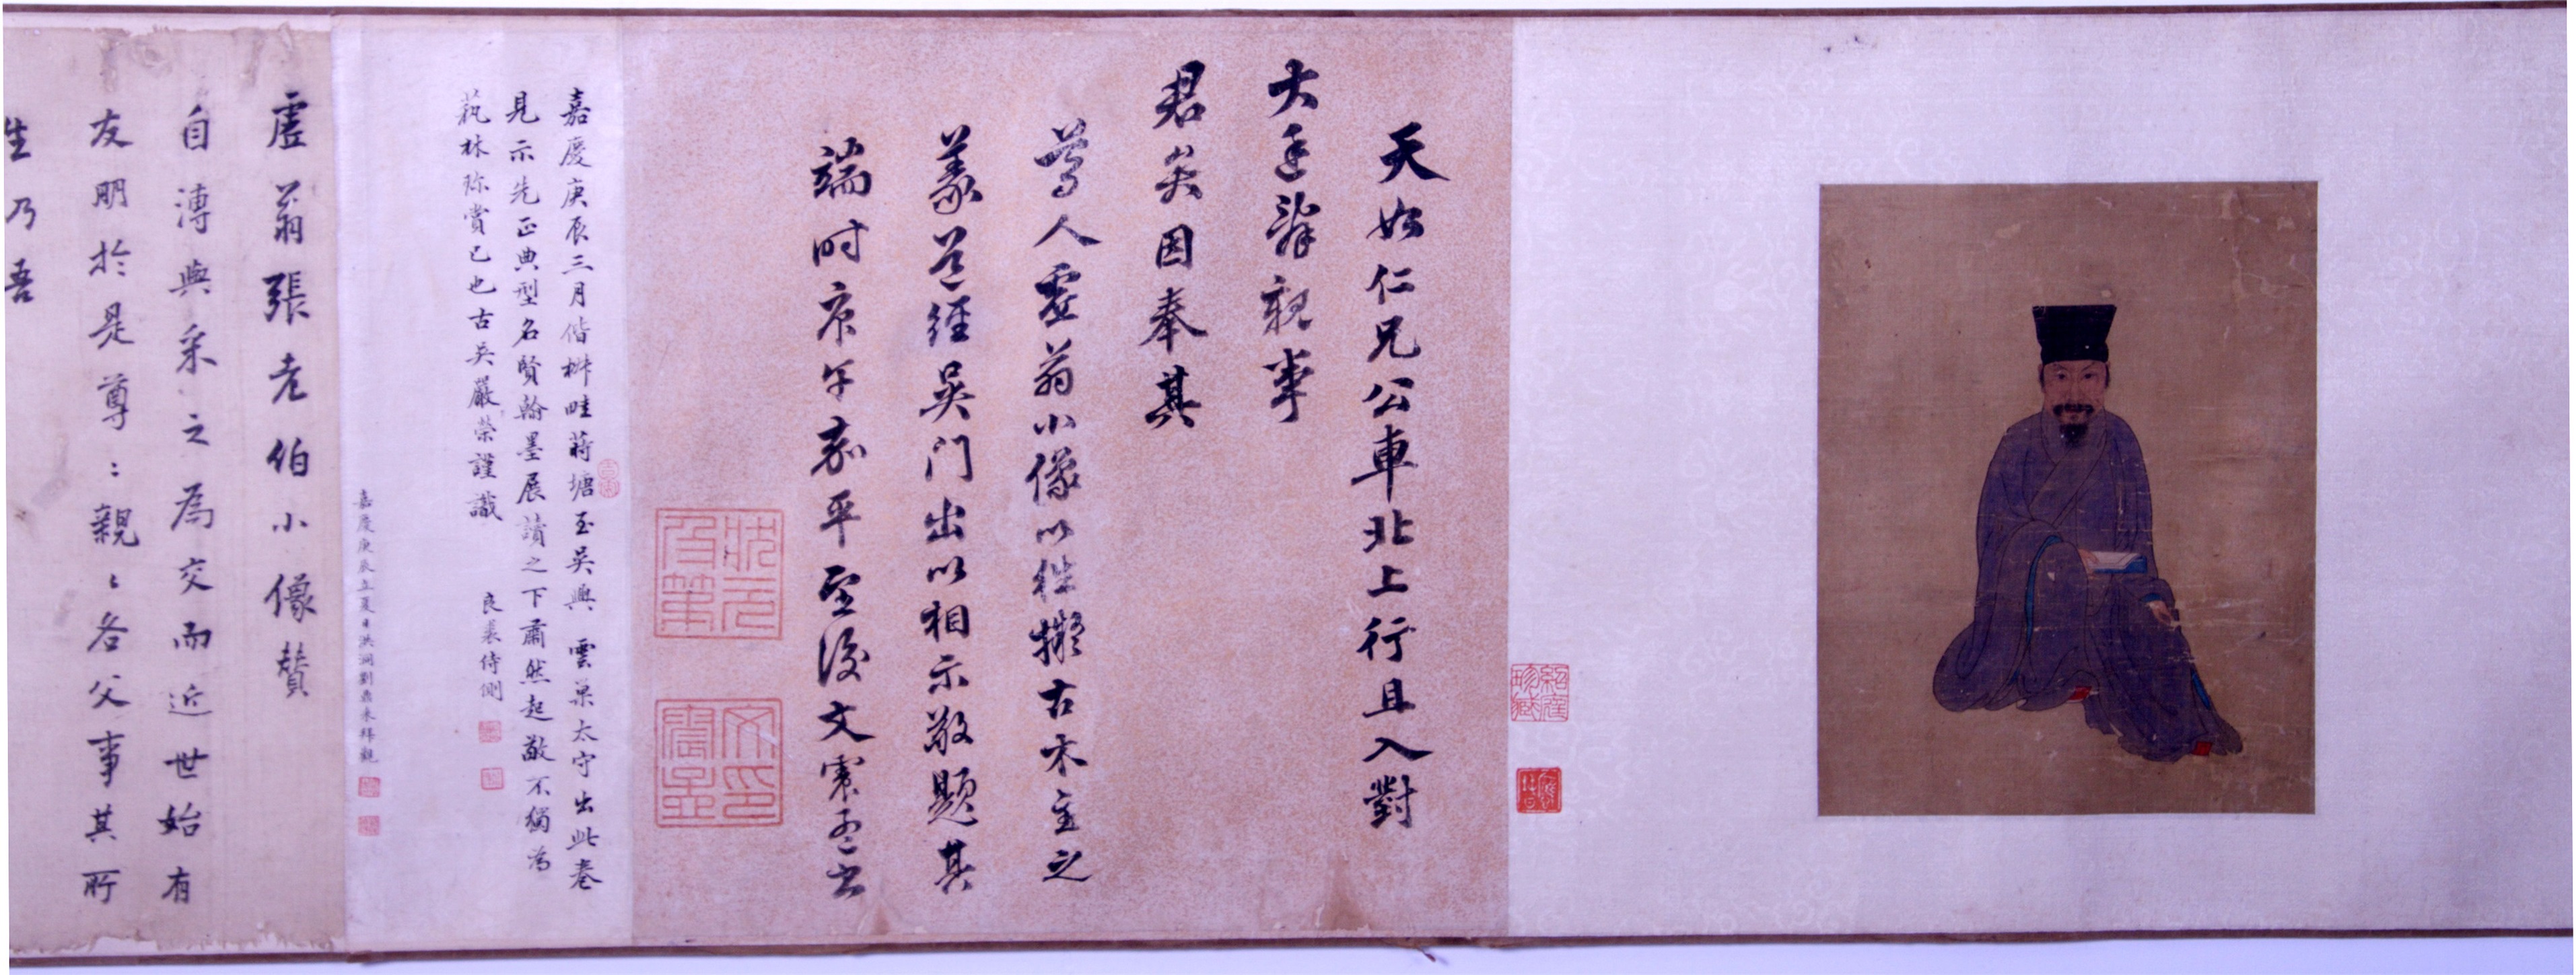 天如仁兄公車北上行且入對
大廷辭親事
君矣因奉其
尊人虛翁小像以往擬古木主之
義道經吳門出以相示敬題其
端時庚午嘉平望後文震孟書
狀元及第
文印震孟
嘉慶庚辰三月偕椒畦蔣塘至吳興雲巢太守出此卷
見示先正典型名賢翰墨展讀之下肅然起敬不獨為
萟林珍賞已也古吳嚴榮謹識
良裘侍側
嘉慶庚辰立夏日洪洞劉師禾拜觀
虛翁張老伯小像贊
自溥與采之為交而近世始有
友朋於是尊〻親〻各父事其所
生乃吾